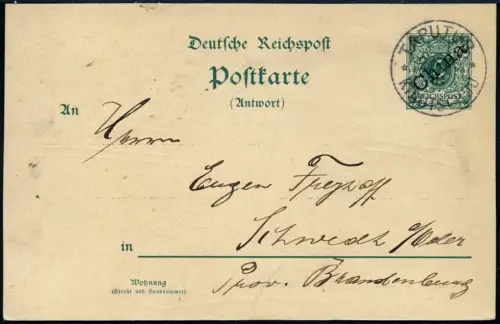 Deutsche Reichspost
Postkarte
(Antwort)
TAPUTUR
China
REICHSPOST
An
Herrn
Eugen
in
Schwedt a/Oder
Wohnung
(Straße und Hausnummer)
Prov. Brandenburg